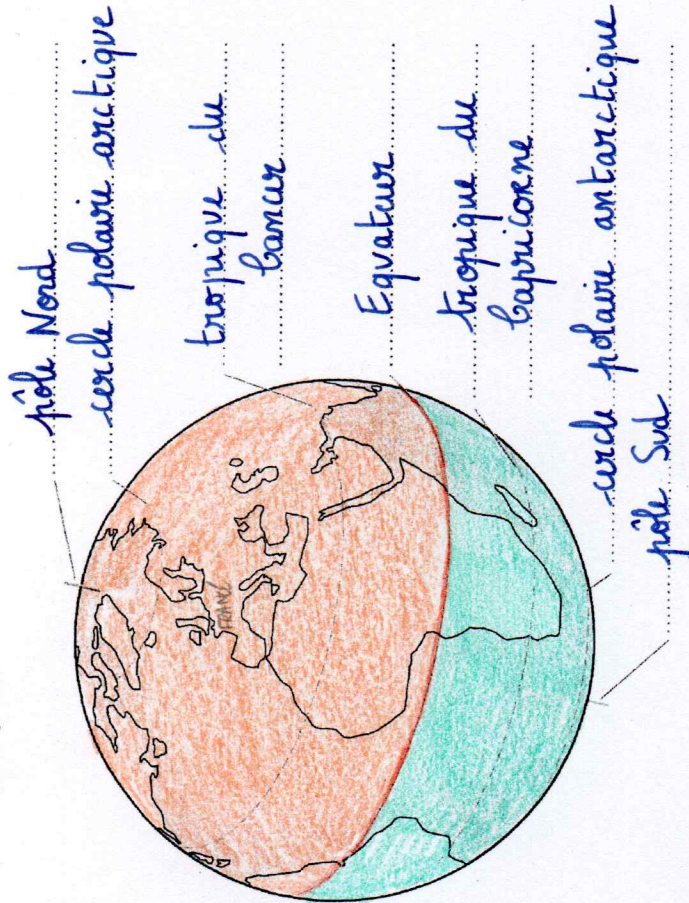 pôle Nord
cercle polaire arctique
tropique du
Cancer
Equateur
tropique du
Capricorne
cercle polaire antarctique
pôle Sud
FRANCE